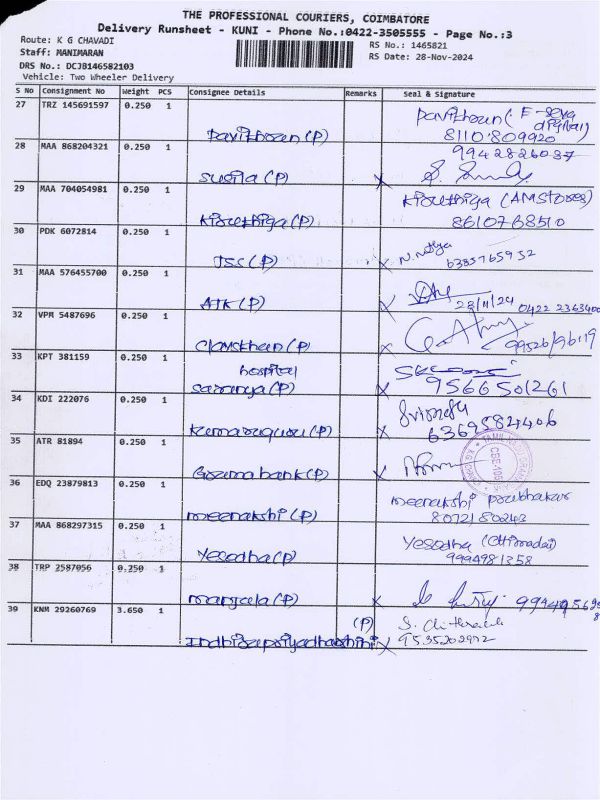 THE PROFESSIONAL COURIERS, COIMBATORE
Delivery Runsheet - KUNI - Phone No.:0422-3505555 - Page No.:3
Route: K G CHAVADI
RS No.: 1465821
Staff: MANIMARAN
RS Date: 28-Nov-2024
DRS No.: DCJB146582103
Vehicle: Two Wheeler Delivery
S No Consignment No Weight PCS Consignee Details Remarks Seal & Signature
27 TRZ 145691597 0.250 1
Pavithran (P)
8110809920
28 MAA 868204321 0.250 1
9942826037
Susila (P) X
29 MAA 704054981 0.250 1
Kiruthiga (P) Kiruthiga (AM Stores)
8610768510
30 PDK 6072814 0.250 1
JSS (P) X N. Nithya
6385765932
31 MAA 576455700 0.250 1
ATK (P) X 28/11/24 0422 2363400
32 VPM 5487696 0.250 1
(P) X
33 KPT 381159 0.250 1
hospital
Saranya (P) X 9566501261
34 KDI 222076 0.250 1
(P) X 6369582406
35 ATR 81894 0.250 1
bank (P) X
36 EDQ 23879813 0.250 1
meenakshi (P) meenakshi Prabhakar
8072180243
37 MAA 868297315 0.250 1
Yesodha (P) Yesodha (Ettimadai)
9994981358
38 TRP 2587056 0.250 1
(P) X
39 KNM 29260769 3.650 1
(P)
Indhirapriyadharshini X 9535202972